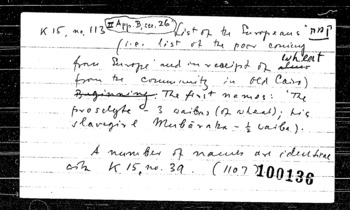 K 15, no. 113 II App. B, sec. 26 List of the Europeans'
(i.e. list of the poor coming
from Europe and in receipt of alms wheat
from the community in Old Cairo)
Beginning The first names: 'The
proselyte - 3 waibas (of wheat); his
slavegirl Mubāraka - ½ waiba).
A number of names are identical
with K 15, no. 39. (1107)
100136